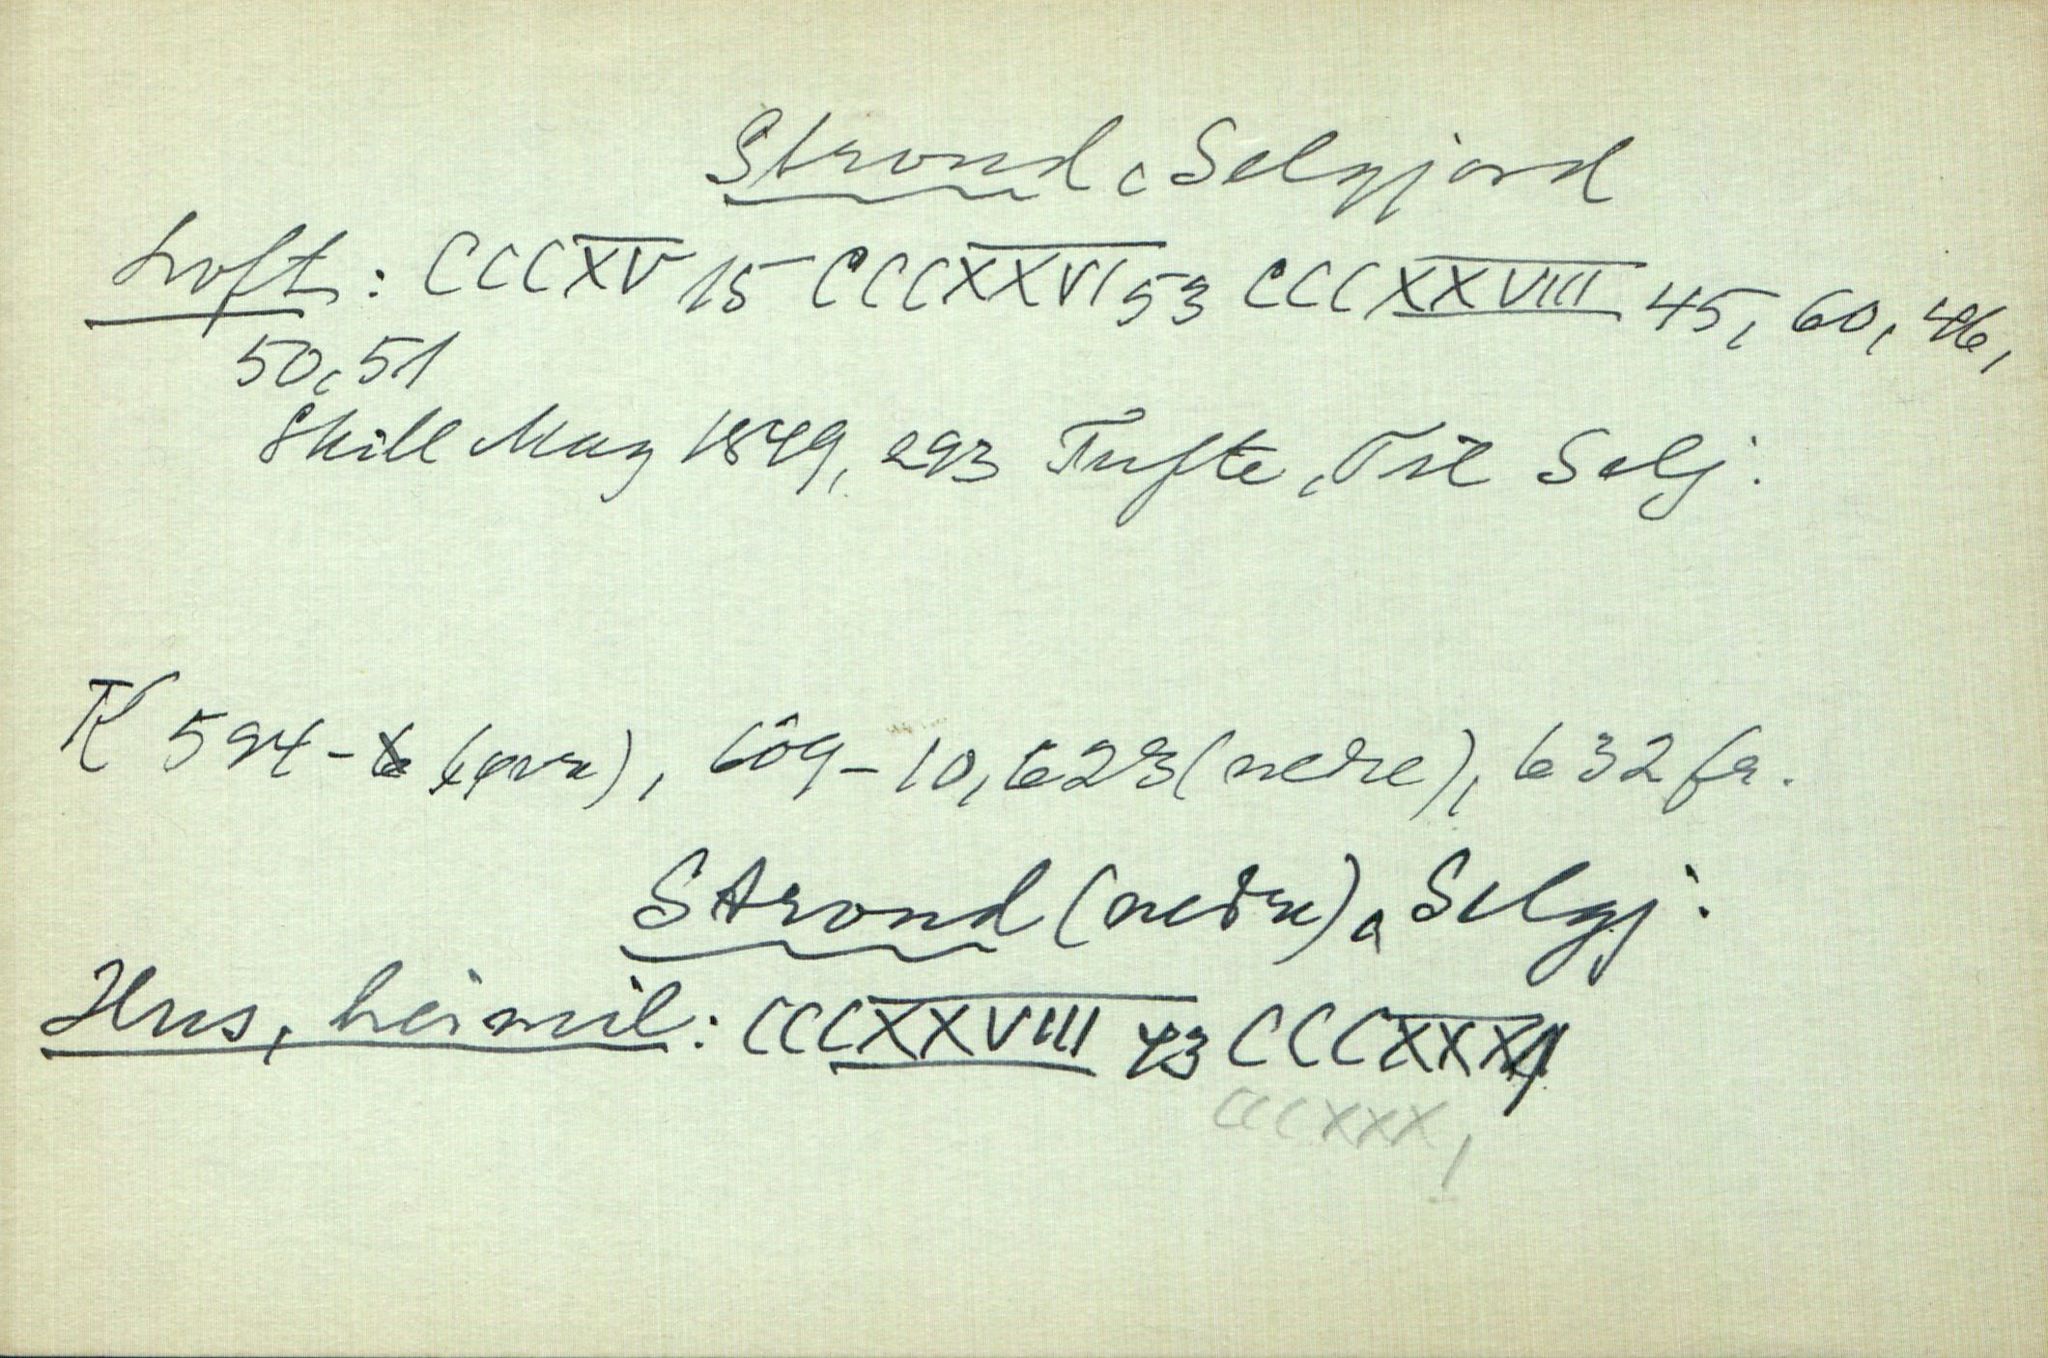 Strond, Selgjord
Loft: CCCXV 15 CCCXXVI 53 CCCXXVIII 45, 60, 46,
50, 51
Skill Mag 1849, 293 Tufte, Selj.
K 594-6 (øvre), 609-10, 623 (nedre), 632 fg.
Strond (nedre), Selgj.
Hus, heimil: CCCXXVIII 43 CCCXXX 1
CCCXXX, 1